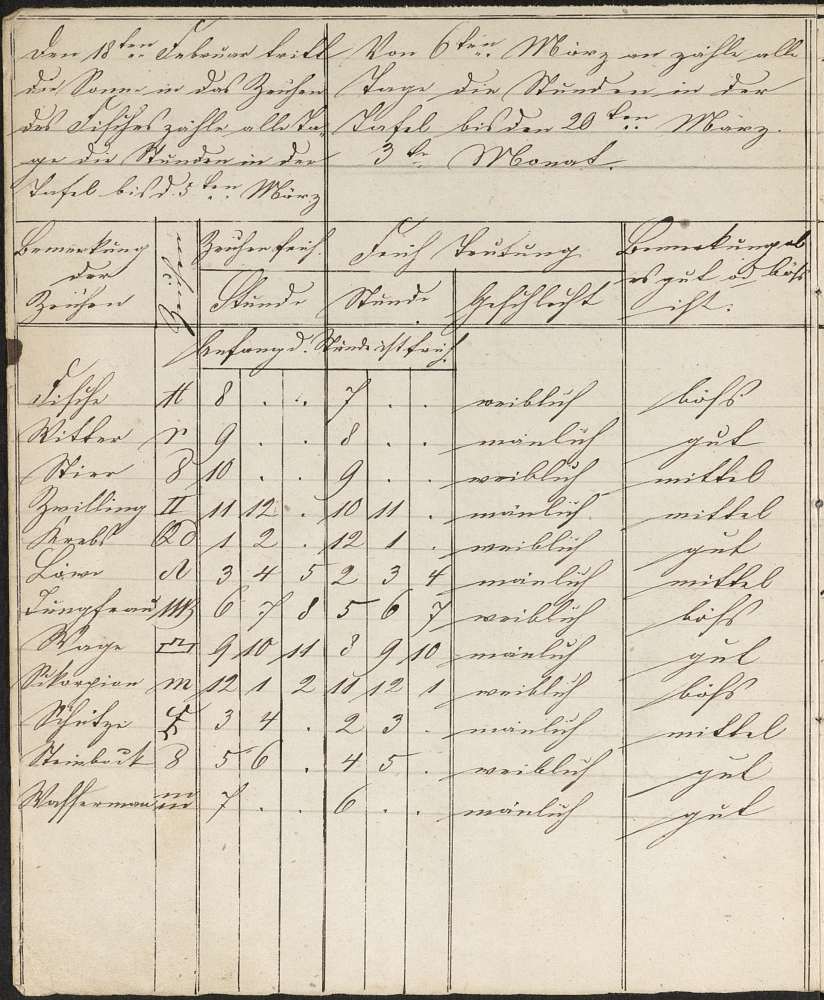 Den 18ten Februar tritt
die Sonne in das Zeichen
des Fisches zähle alle Ta-
ge die Stunden in der
Tafel bis d. 5ten März
Von 6ten März an zähle alle
Tage die Stunden in der
Tafel bis den 20ten März.
3te Monat.
Bemerkung
der
Zeichen
Zeichen
Zeichen früh.
Stunde
Früh Deutung
Stunde
Geschlecht
Bemerkung ob
es gut od. böhs
ist.
Anfang d. Stunde ist früh.
Fische ♓ 8 . . 7 . . weiblich böhs
Witter ♈ 9 . . 8 . . mänlich gut
Stier 8 10 . . 9 . . weiblich mittel
Zwilling II 11 12 . 10 11 . mänlich mittel
Krebs ♋ 1 2 . 12 1 . weiblich gut
Löwe ♌ 3 4 5 2 3 4 mänlich mittel
Jungfrau ♍ 6 7 8 5 6 7 weiblich böhs
Wage ♎ 9 10 11 8 9 10 mänlich gut
Skorpion m 12 1 2 11 12 1 weiblich böhs
Schütze ♐ 3 4 . 2 3 . mänlich mittel
Steinbock 8 5 6 . 4 5 . weiblich gut
Wasserman ♒ 7 . . 6 . . mänlich gut